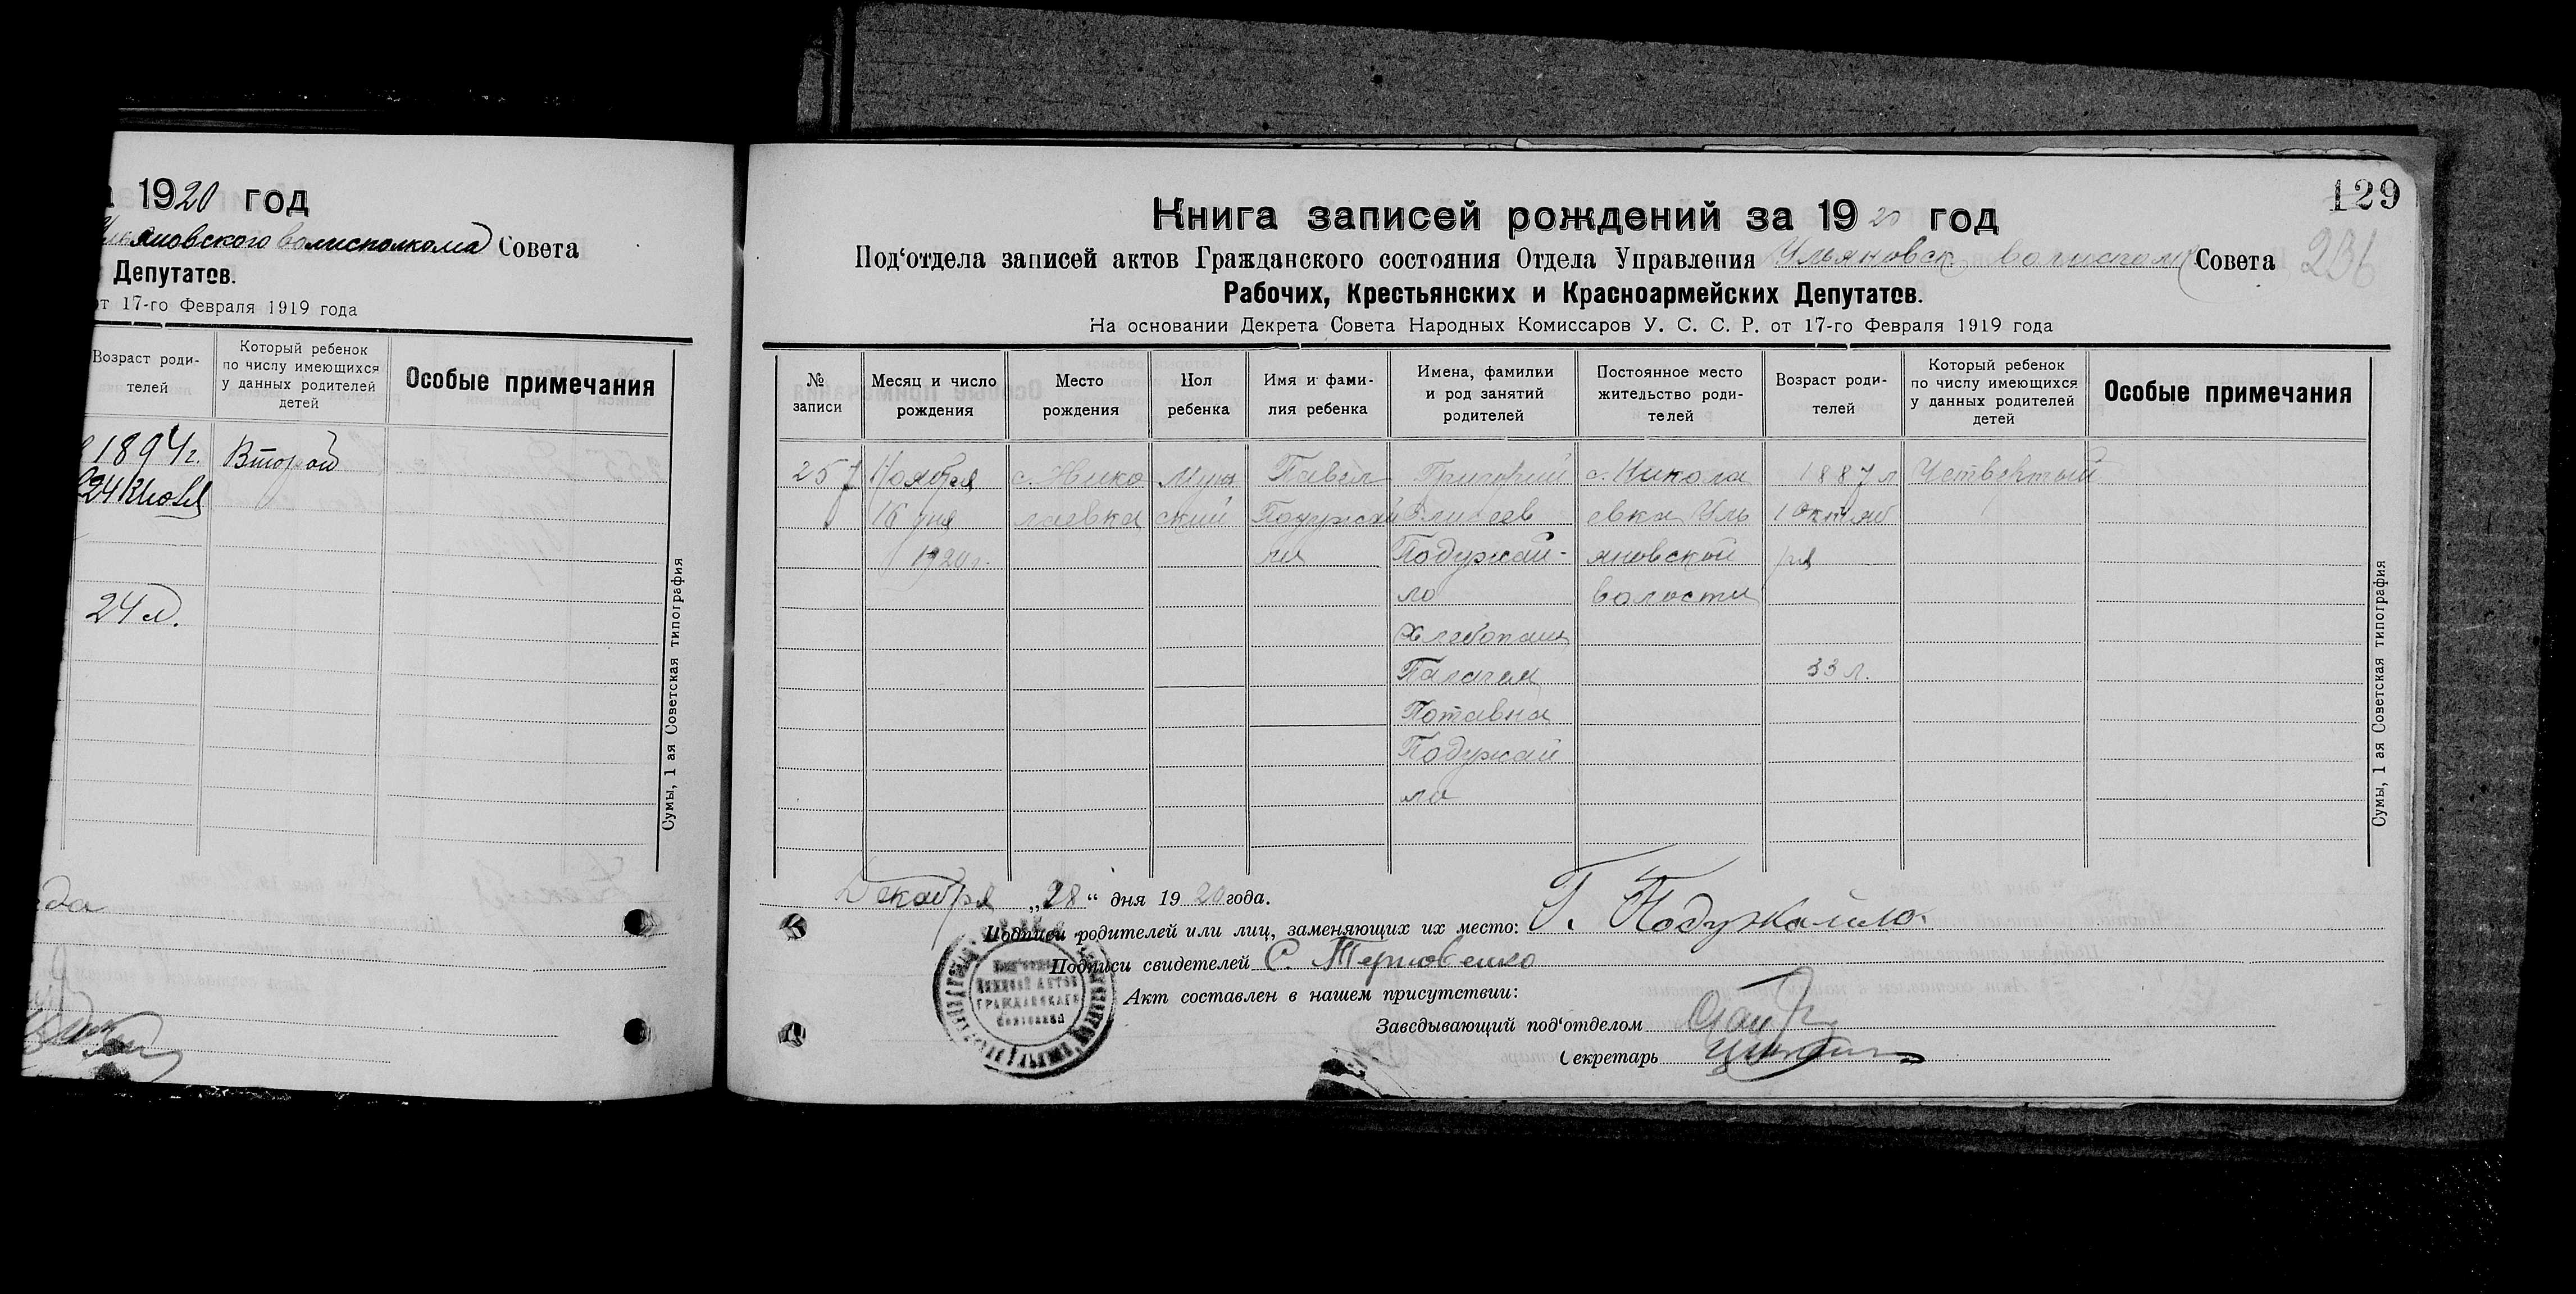 1920 год
Ульяновского волисполкома Совета
Депутатов.
от 17-го Февраля 1919 года
Возраст роди-
телей
Который ребенок
по числу имеющихся
у данных родителей
детей
Особые примечания
1894 г.
Второй
24
24 л.
Сумы, 1 ая Советская типография
129
236
Книга записей рождений за 1920 год
Под‘отдела записей актов Гражданского состояния Отдела Управления Ульяновск волисполк Совета
Рабочих, Крестьянских и Красноармейских Депутатов.
На основании Декрета Совета Народных Комиссаров У. С. С. Р. от 17-го Февраля 1919 года
№
записи
Месяц и число
рождения
Место
рождения
Пол
ребенка
Имя и фами-
лия ребенка
Имена, фамилии
и род занятий
родителей
Постоянное место
жительство роди-
телей
Возраст роди-
телей
Который ребенок
по числу имеющихся
у данных родителей
детей
Особые примечания
257 Ноября с. Нико Муж Павел Григорий с. Никола 1887 л Четвертый
16 дня лаевка ской Подужай Елисеев евка Уль 1 октяб
1920 г. ла Подужай- яновской ря
ло волости
Хлебопаш
Палагея 33 л.
Потавна
Подужай
ло
Сумы, 1 ая Советская типография
Декабря „28“ дня 1920 года.
Подписи родителей или лиц, заменяющих их место: Г. Подужайло.
Подписи свидетелей С. Терновенко
Акт составлен в нашем присутствии:
Заведывающий под‘отделом
Секретарь
ГРАЖДАНСКАГО